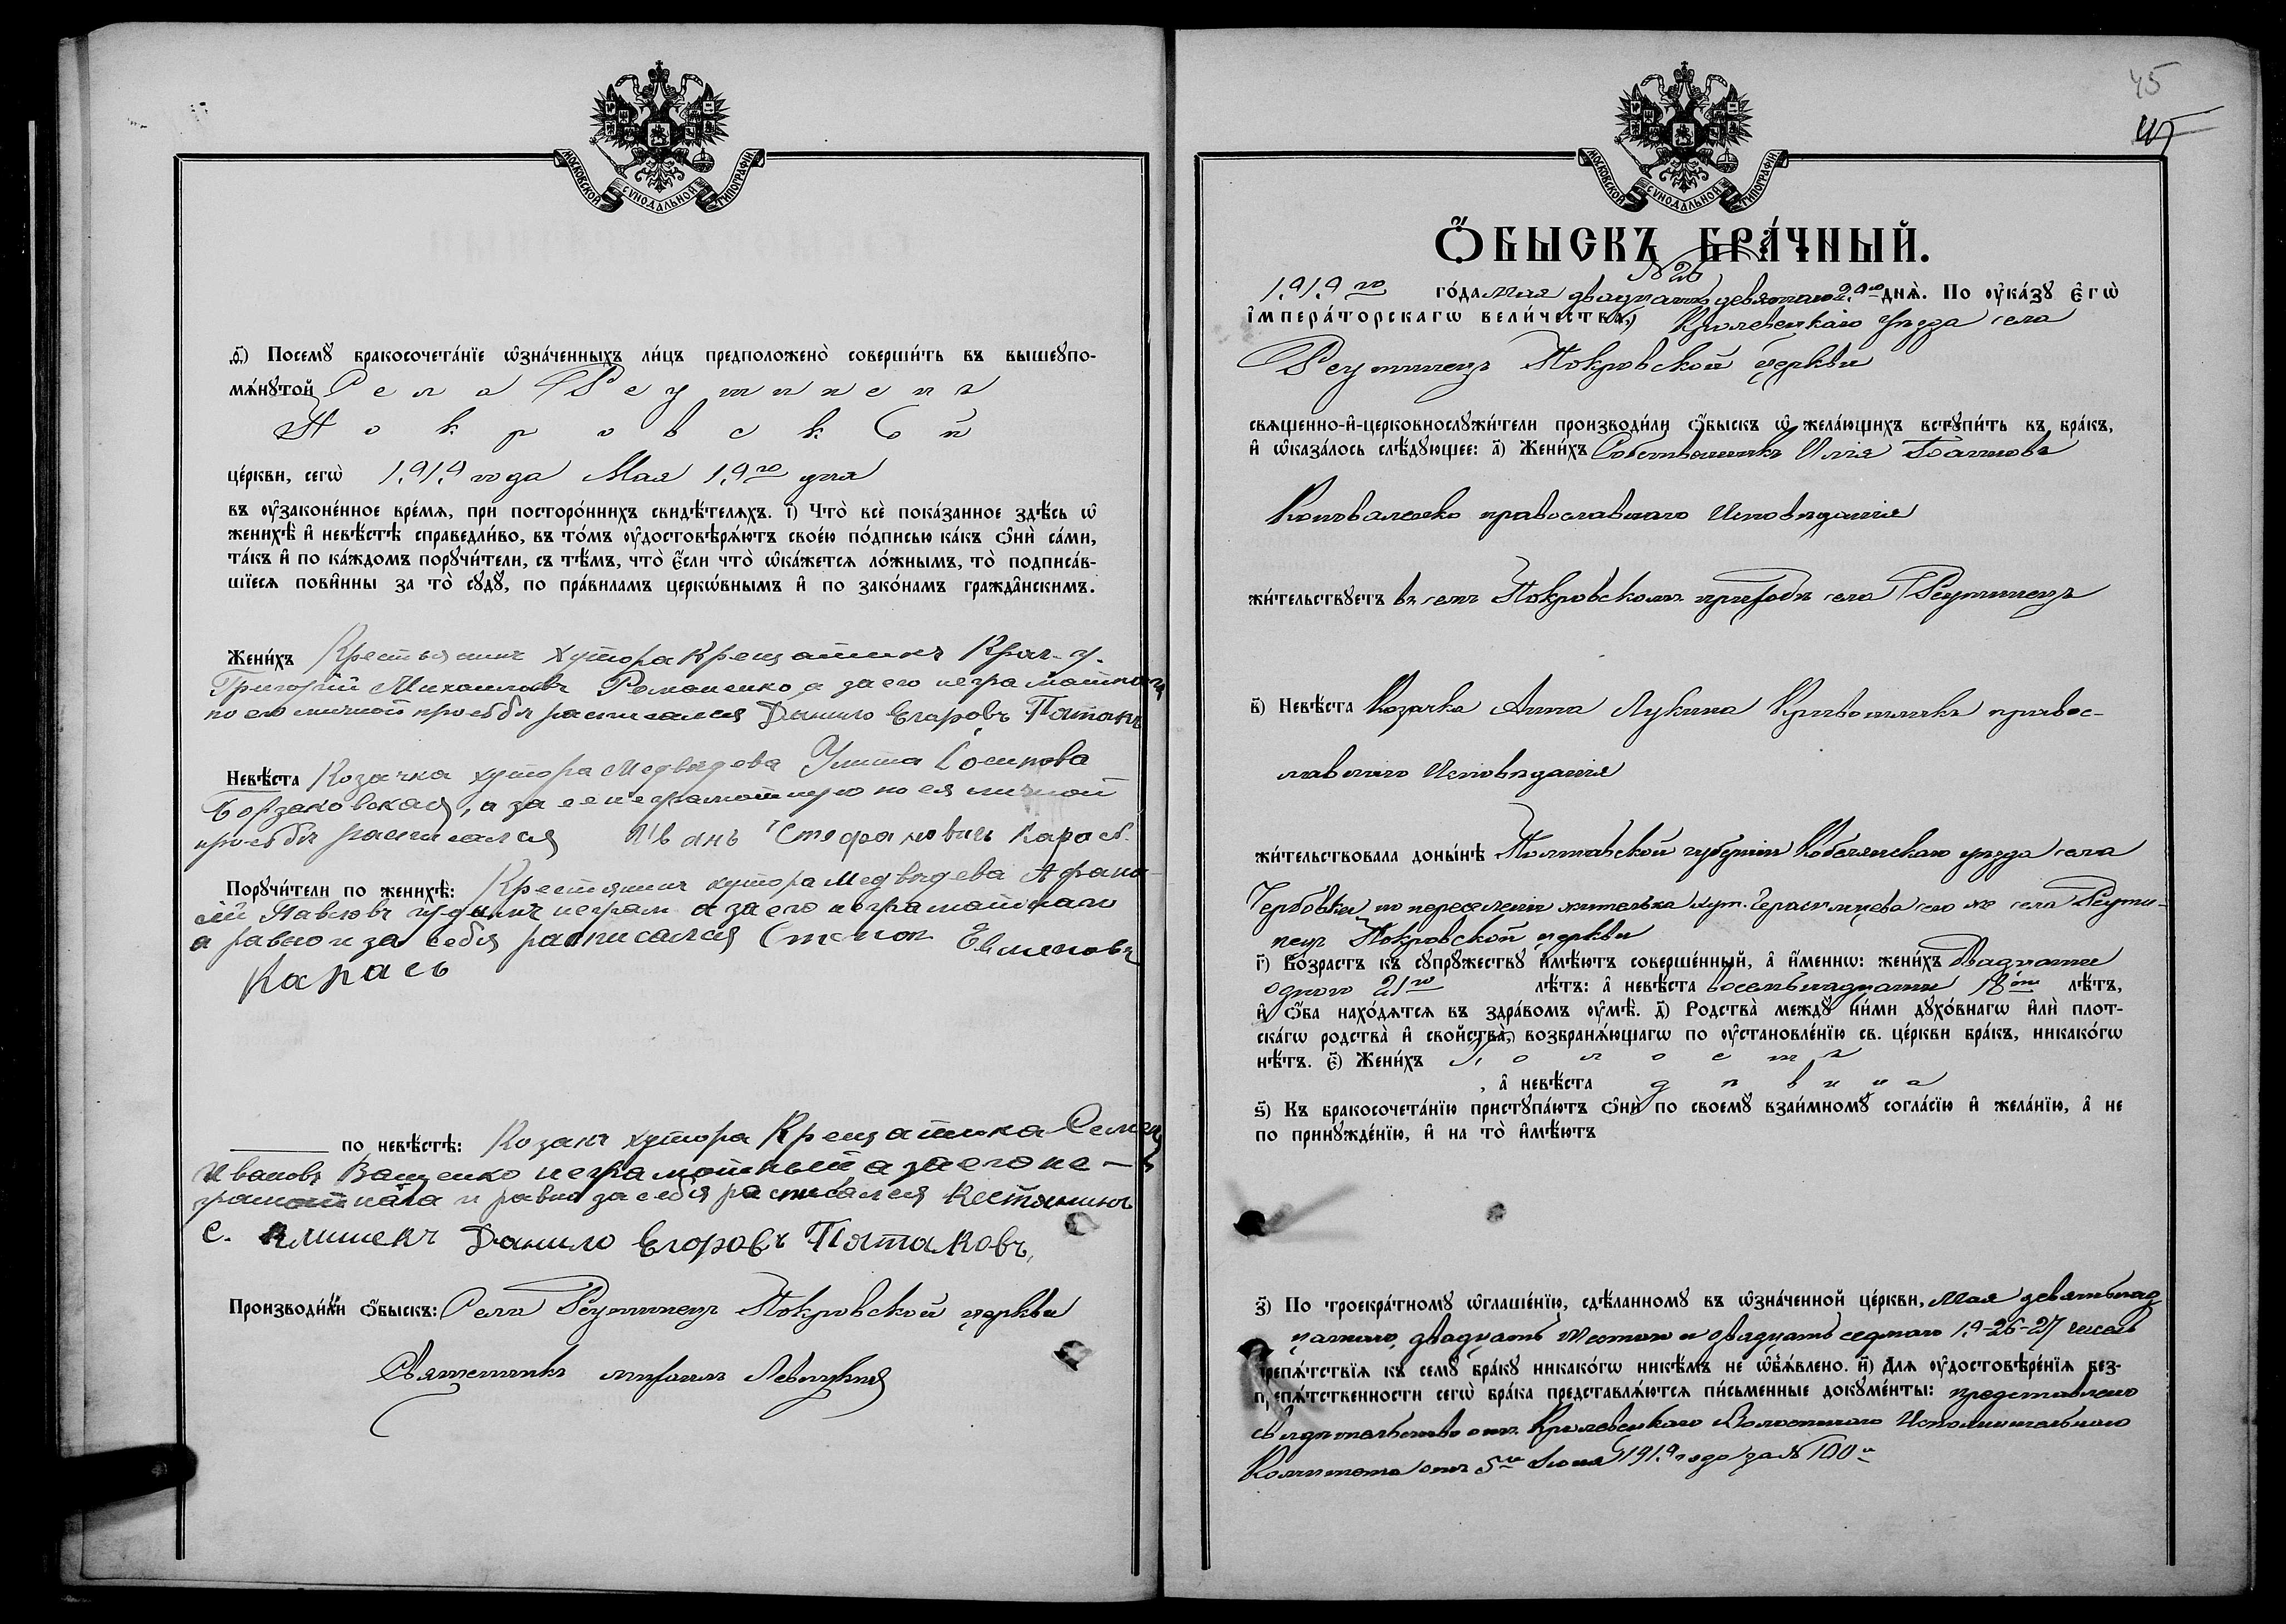 МОСКОВСКОЙ СѴНОДАЛЬНОЙ ТИПОГРАФІИ
ѳ҃) Посемꙋ̀ бракосочета́нїе ѡ҆зна́ченныхъ ли́цъ предположено̀ соверши́ть въ вышеꙋпо-
мѧ́нꙋтой Села Реутинецъ
Покровской
це́ркви, сегѡ̀ 1919 года Мая 19го дня
въ ᲂу҆законе́нное вре́мѧ, при посторо́ннихъ свидѣ́телѧхъ. і҃) Что̀ всѐ пока́занное здѣ́сь ѡ҆
женихѣ̀ и҆ невѣ́стѣ справедли́во, въ то́мъ ᲂу҆достовѣрѧ́ютъ свое́ю по́дписью ка́къ ѻ҆нѝ са́ми,
та́къ и҆ по ка́ждомъ порꙋчи́тели, съ тѣ́мъ, что̀ є҆́сли что̀ ѡ҆ка́жетсѧ ло́жнымъ, то̀ подписа́в-
шїесѧ пови́нны за то̀ сꙋдꙋ̀, по пра́виламъ церкѡ́внымъ и҆ по зако́намъ гражда̑нскимъ.
Жени́хъ Крестьянинъ хутора Крещатикъ Крол. у.
Григорій Михаиловъ Романенко а за его неграмотнаго
по его личной просьбѣ расписался Данило Егоровъ Пятаковъ
Невѣ́ста Козачка хутора Медвѣдева Улита Іосипова
Борзаковская, а за ее неграмотную по ея личной
просьбѣ расписался Иванъ Стефановичъ Карась.
Порꙋчи́тели по женихѣ̀: Крестянинъ хутора Медвѣдева Афана-
сій Павловъ неграм а за его неграмотнаго
а равно и за себя расписался Степан Евменовъ
Карась
по невѣ́стѣ: Козакъ хутора Крещатика Семенъ
Ивановъ Ващенко неграмотный а за его не-
грамотнаго и равно за себя расписался Кестянинъ
с. Клишекъ Данило Егоровъ Пятаковъ,
Производи́ли ѻ҆́быскъ: Села Реутинецъ Покровской церкви
Священникъ Левицкий
45
МОСКОВСКОЙ СѴНОДАЛЬНОЙ ТИПОГРАФІИ
Ѻ҆́БЫСКЪ БРА́ЧНЫЙ.
№ 26
1919го го́да Мая двадцать девятаго 29го днѧ̀. По ᲂу҆ка́зꙋ є҆гѡ̀
і҆мпера́торскагѡ вели́чества, Кролевецкаго уѣзда села
Реутинецъ Покровской церкви
свѧще́нно-и҆-церковнослꙋжи́тели производи́ли ѻ҆́быскъ ѡ҆ жела́ющихъ встꙋпи́ть въ бра́къ,
и҆ ѡ҆каза́лось слѣ́дꙋющее: а҃) Жени́хъ Собственникъ Илія Іоанновъ
Коноваленко православнаго Исповѣданія
жи́тельствꙋетъ въ семъ Покровскомъ приходѣ села Реутинецъ
в҃) Невѣ́ста Козачка Анна Лукина правос-
лавнаго Исповѣданія
жи́тельствовала донынѣ Полтавской губерніи Кобелянскаго уѣзда села
по переселеніи жителька хут. сего же села Реути-
нецъ Покровской церкви
г҃) Во́зрастъ къ сꙋпрꙋ́жествꙋ и҆мѣ́ютъ соверше́нный, а҆ и҆́меннѡ: жени́хъ Двадцати
одного 21го лѣ́тъ: а҆ невѣ́ста восемьнадцати 18ти лѣ́тъ,
и҆ ѻ҆́ба нахо́дѧтсѧ въ здра́вомъ ᲂу҆мѣ̀. д҃) Родства̀ междꙋ̀ ни́ми дꙋхо́внагѡ и҆лѝ плот-
ска́гѡ родства̀ и҆ свойства̀, возбранѧ́ющагѡ по ᲂу҆становле́нїю св. це́ркви бра́къ, никако́гѡ
нѣ́тъ. є҃) Жени́хъ холостъ
, а҆ невѣ́ста дѣвица
ѕ҃) Къ бракосочета́нїю пристꙋпа́ютъ ѻ҆нѝ по своемꙋ̀ взаи́мномꙋ согла́сїю и҆ жела́нїю, а҆ не
по принꙋжде́нїю, и҆ на то̀ и҆мѣ́ютъ
з҃) По троекра́тномꙋ ѡ҆глаше́нїю, сдѣ́ланномꙋ въ ѡ҆зна́ченной це́ркви, Мая девятьнад
цатаго, двадцать шестого и двадцать седмаго 19-26-27 чиселъ
препѧ́тствїѧ къ семꙋ̀ бра́кꙋ никако́гѡ никѣ́мъ не ѡ҆б̾ѧ́влено. и҃) Длѧ ᲂу҆достовѣре́нїѧ без-
препѧ́тственности сегѡ̀ бра́ка представлѧ́ютсѧ пи́сьменные докꙋме́нты: представлено
Свидѣтельство отъ Кролевецкаго Волостного Исполнительнаго
Комитета отъ 5го 1919 года за № 100м